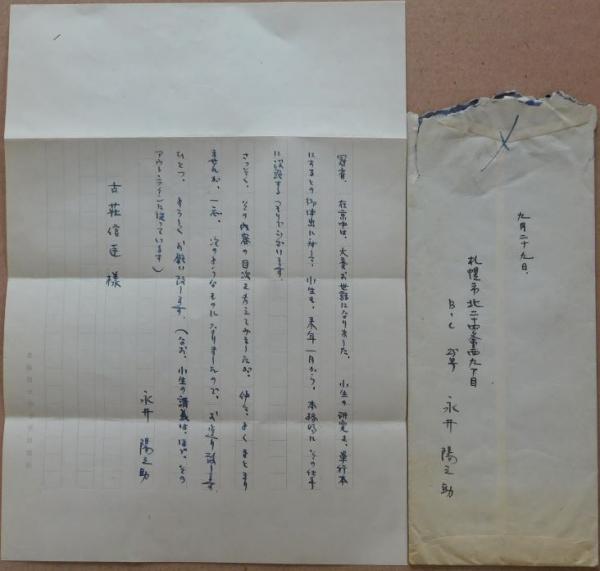 冠省、在京中は、大変お世話になりました。小生の研究を、単行本
にするとの御申出に対して、小生も、来年一月から、本格的にその仕事
に没頭するつもりでございます。
さっそく、その内容の目次を考えてみましたが、仲々、よくまとまり
ませんが、一応、次のようなものになりましたので、お送り致します。
ひとつ、よろしくお願い致します。(なお、小生の講義は、ほぼ、その
アウト・ラインに従っています)
永井陽之助
古荘信臣様
九月二十九日、
札幌市北二十四条西九丁目
永井陽之助